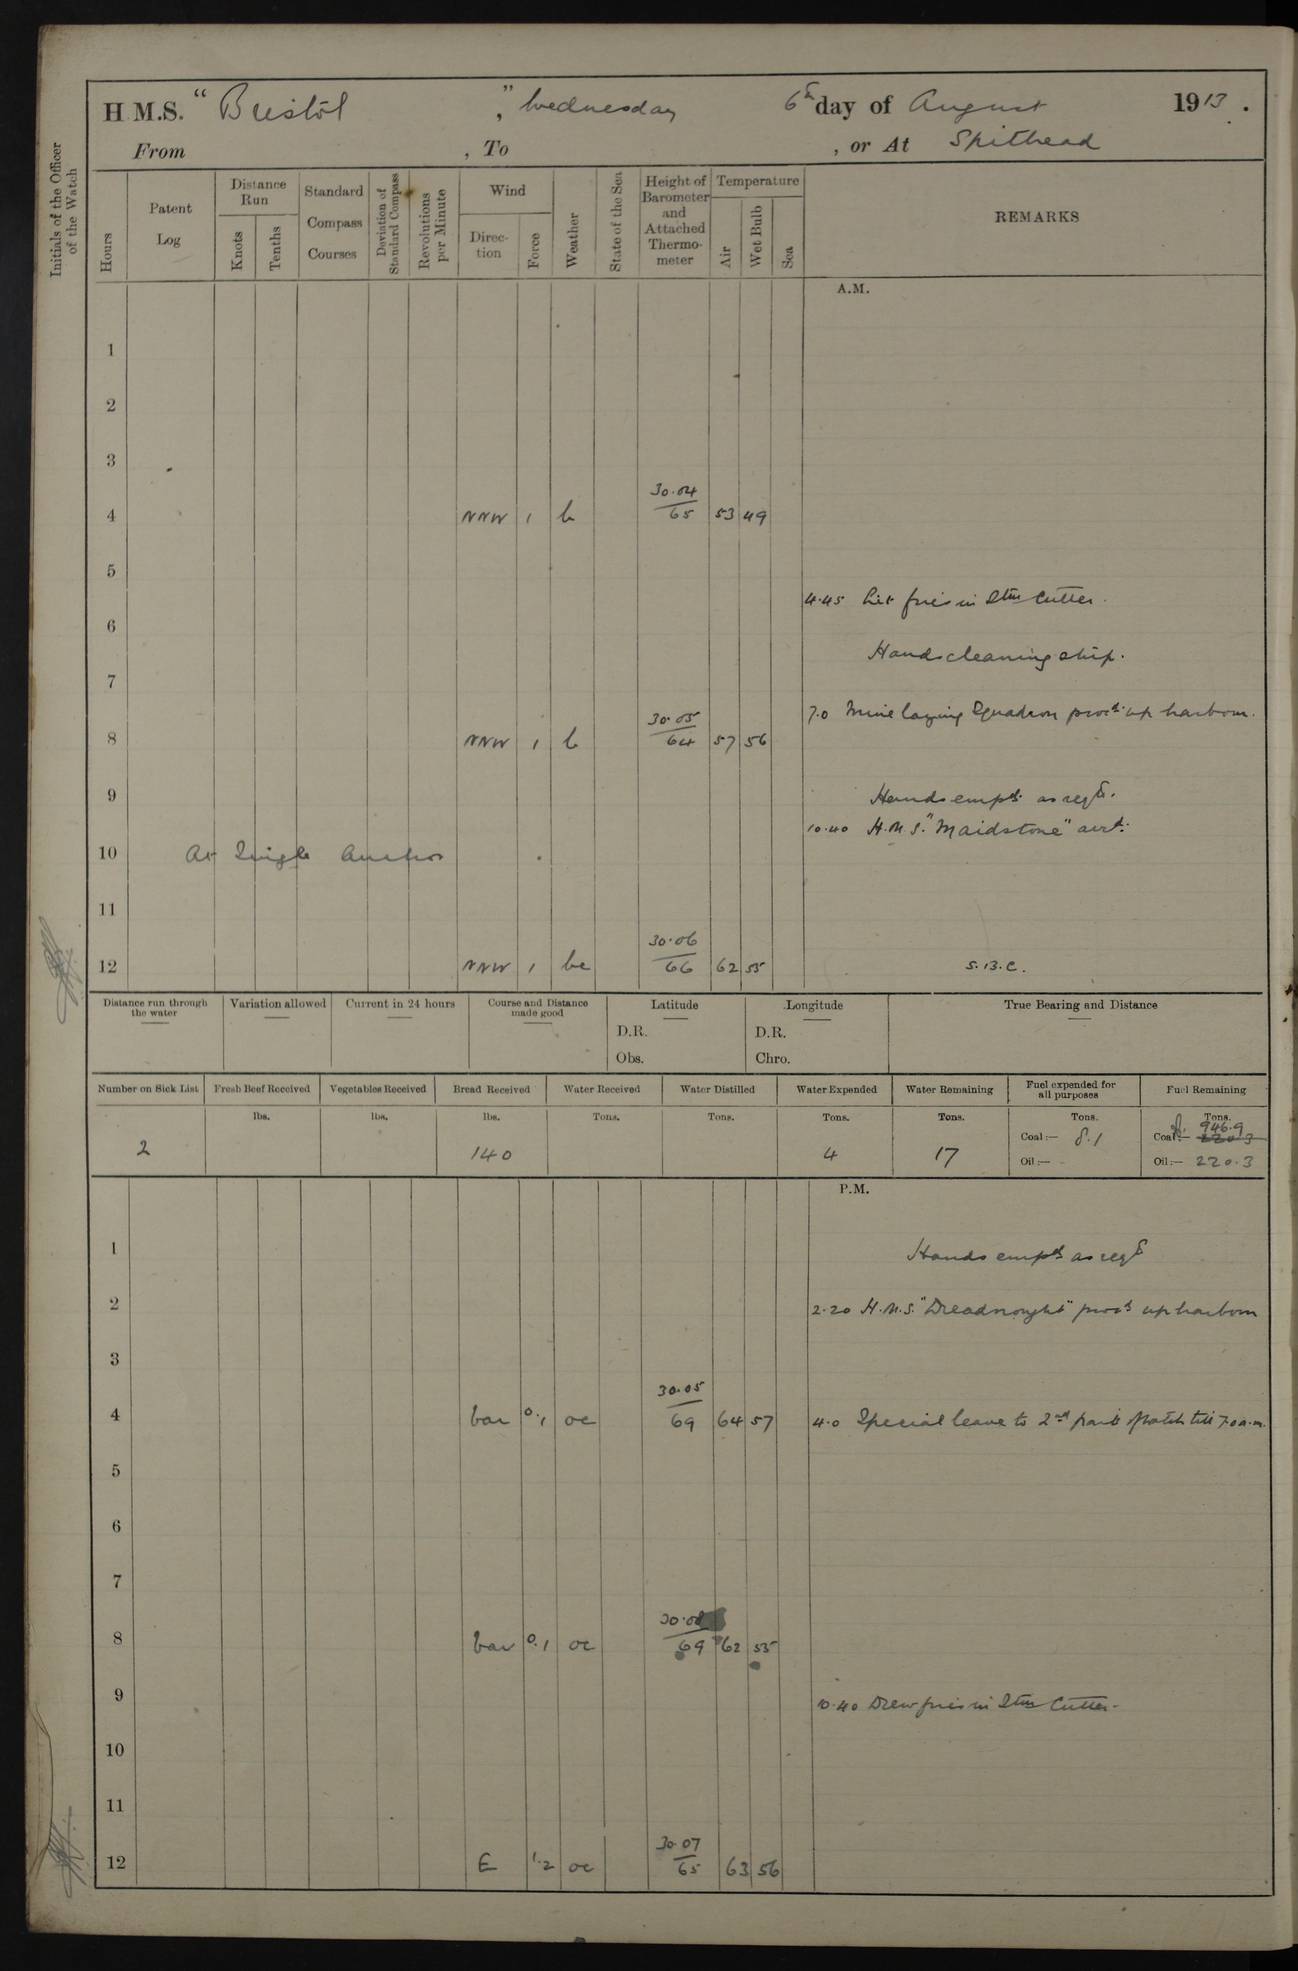 H.M.S. "Bristol", Wednesday 6th day of August 1913.
From , To , or At Spithead
Initials of the Officer of the Watch
Hours
Patent Log
Distance Run
Knots
Tenths
Standard Compass Courses
Deviation of Standard Compass
Revolutions per Minute
Wind
Direction
Force
Weather
State of the Sea
Height of Barometer and Attached Thermometer
Temperature
Air
Wet Bulb
Sea
REMARKS
A.M.
1
2
3
30.04
4 NNW 1 b 65 53 49
5
4.45 Lit fires in Stm Cutter.
6
Hands cleaning ship.
7
7.0 Mine laying Squadron procd. up harbour.
30.05
8 NNW 1 b 64 57 56
9 Hands empd. as reqd.
10.40 H.M.S. "Maidstone" arrd.
10 At Single Anchor
11
30.06
12 NNW 1 bc 66 62 55 S.B.C.
Distance run through the water
Variation allowed
Current in 24 hours
Course and Distance made good
Latitude
D.R.
Obs.
Longitude
D.R.
Chro.
True Bearing and Distance
Number on Sick List Fresh Beef Received Vegetables Received Bread Received Water Received Water Distilled Water Expended Water Remaining Fuel expended for all purposes Fuel Remaining
lbs. lbs. lbs. Tons. Tons. Tons. Tons. Tons. Tons.
946.9
2 140 4 17 Coal:— 8.1 Coal:— 220.3
Oil:— - Oil:— 220.3
P.M.
1 Hands empd as reqd
2 2.20 H.M.S. "Dreadnought" procd up harbour
3
30.05
4 bar 0.1 oc 69 64 57 4.0 Special leave to 2nd part of watch till 7.0 a.m.
5
6
7
30.08
8 bar 0.1 oc 69 62 55
9 10.40 Drew fires in Stm Cutter.
10
11
30.07
12 E 1.2 oc 65 63 56